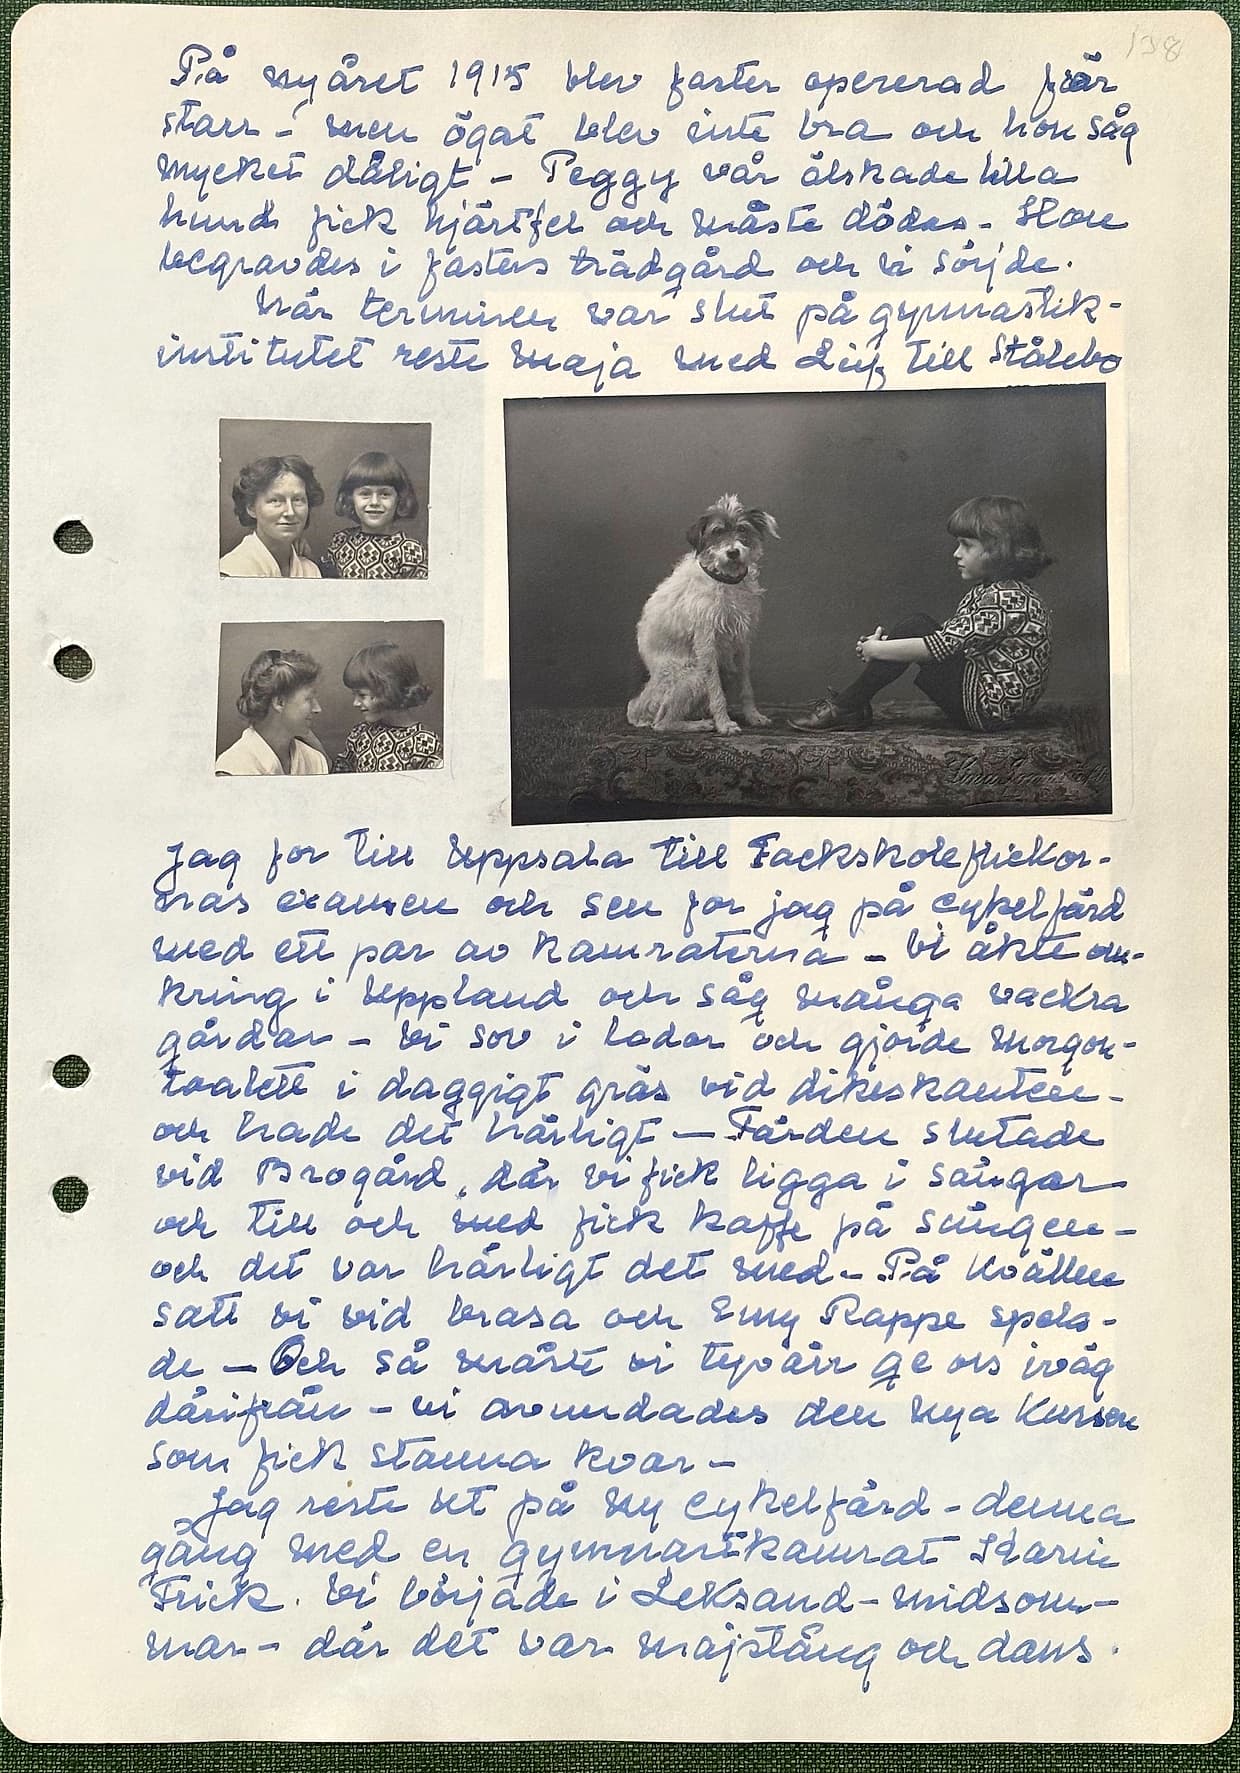 138
På nyåret 1915 blev faster opererad för
starr - men ögat blev inte bra och hon såg
mycket dåligt - Peggy vår älskade lilla
hund fick hjärtfel och måste dödas - Hon
begravdes i fasters trädgård och vi sörjde.
När terminen var slut på gymnastik-
institutet reste Maja med till Stålebo
Jag for till Uppsala till Fackskoleflickor-
nas examen och sen for jag på cykelfärd
med ett par av kamraterna - Vi åkte om-
kring i Uppland och såg många vackra
gårdar - Vi sov i lador och gjorde morgon-
toalett i daggigt gräs vid dikeskanten -
och hade det härligt - Färden slutade
vid Brogård, där vi fick ligga i sängar
och till och med fick kaffe på sängen -
och det var härligt det med - På kvällen
satt vi vid brasa och Emy Rappe spela-
de - Och så måste vi tyvärr ge oss iväg
därifrån - vi avundades den nya kursen
som fick stanna kvar -
Jag reste ut på ny cykelfärd - denna
gång med en gymnastikkamrat Karin
Frick. Vi började i Leksand - midsom-
mar - där det var majstång och dans.